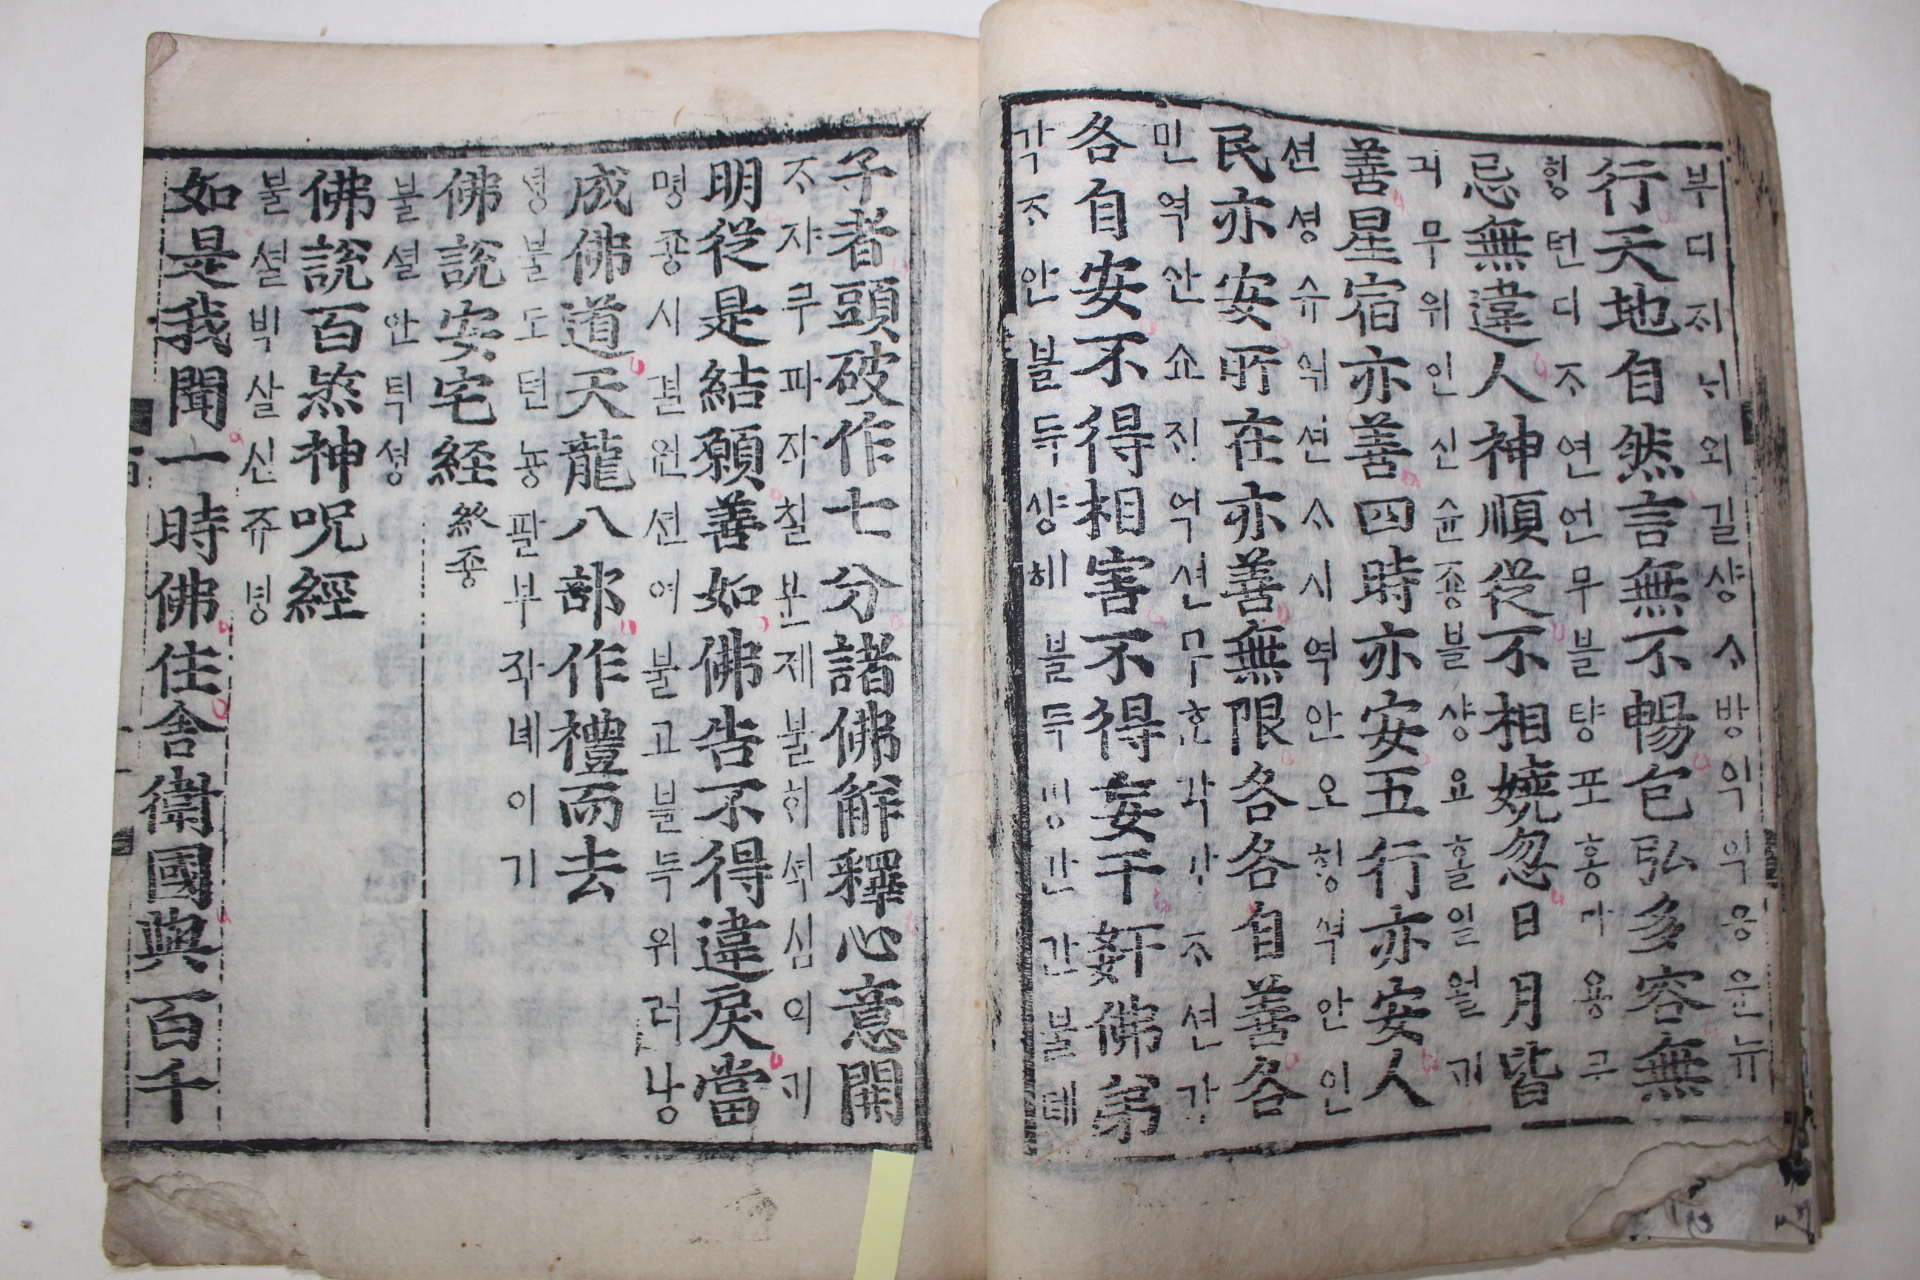 부디지니외길샹ᄉ방익익응은뉴
行天地自然言無不暢包弘多容無
힝텬디ᄌ연언무블턍포홍다용그
忌無違人神順從不相嬈忽日月皆
긔무위인신슌죵블샹요홀일월긔
善星宿亦善四時亦安五行亦安人
션셩슈익션ᄉ시역안오힝석안인
民亦安所在亦善無限各各自善各
민역안쇼진역션무흔각각ᄌ션각
各自安不得相害不得妄干奸佛弟
각ᄌ안블득샹헤블득밍간간블톄
子者頭破作七分諸佛觧釋心意開
ᄌ쟈루파작칠분제불히셕심의긔
明從是結願善如佛告不得違戾當
명죵시결원션여불고블득위러낭
成佛道天龍八部作禮而去
녕불도텬뇽팔부작녜이기
佛說安宅経 終죵
불셜안틱셩
佛說百煞神呪經
불셜빅살신쥬녕
如是我聞一時佛住舍衛國與百千